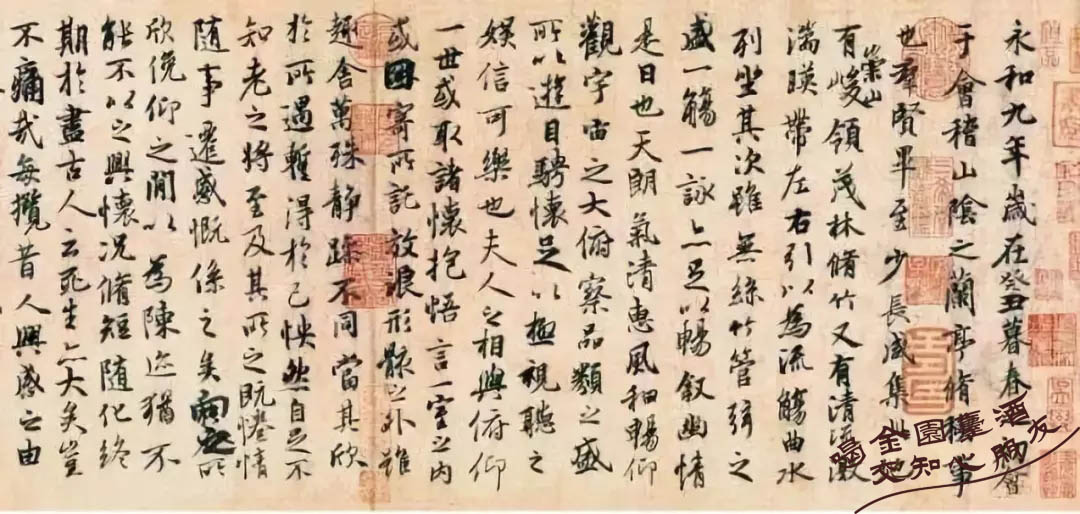 永和九年歲在癸丑暮春會
于會稽山陰之蘭亭脩稧事
也羣賢畢至少長咸集此地
有崇山峻領茂林脩竹又有清流激
湍暎帶左右引以為流觴曲水
列坐其次雖無絲竹管弦之
盛一觴一詠亦足以暢敘幽情
是日也天朗氣清惠風和暢仰
觀宇宙之大俯察品類之盛
所以遊目騁懷足以極視聽之
娛信可樂也夫人之相與俯仰
一世或取諸懷抱悟言一室之內
或因寄所託放浪形骸之外雖
趣舍萬殊靜躁不同當其欣
於所遇暫得於己怏然自足不
知老之將至及其所之既惓情
隨事遷感慨係之矣向之所
欣俛仰之閒以為陳迹猶不
能不以之興懷況脩短隨化終
期於盡古人云死生亦大矣豈
不痛哉每攬昔人興感之由
喝金園囊酒
交知心朋友